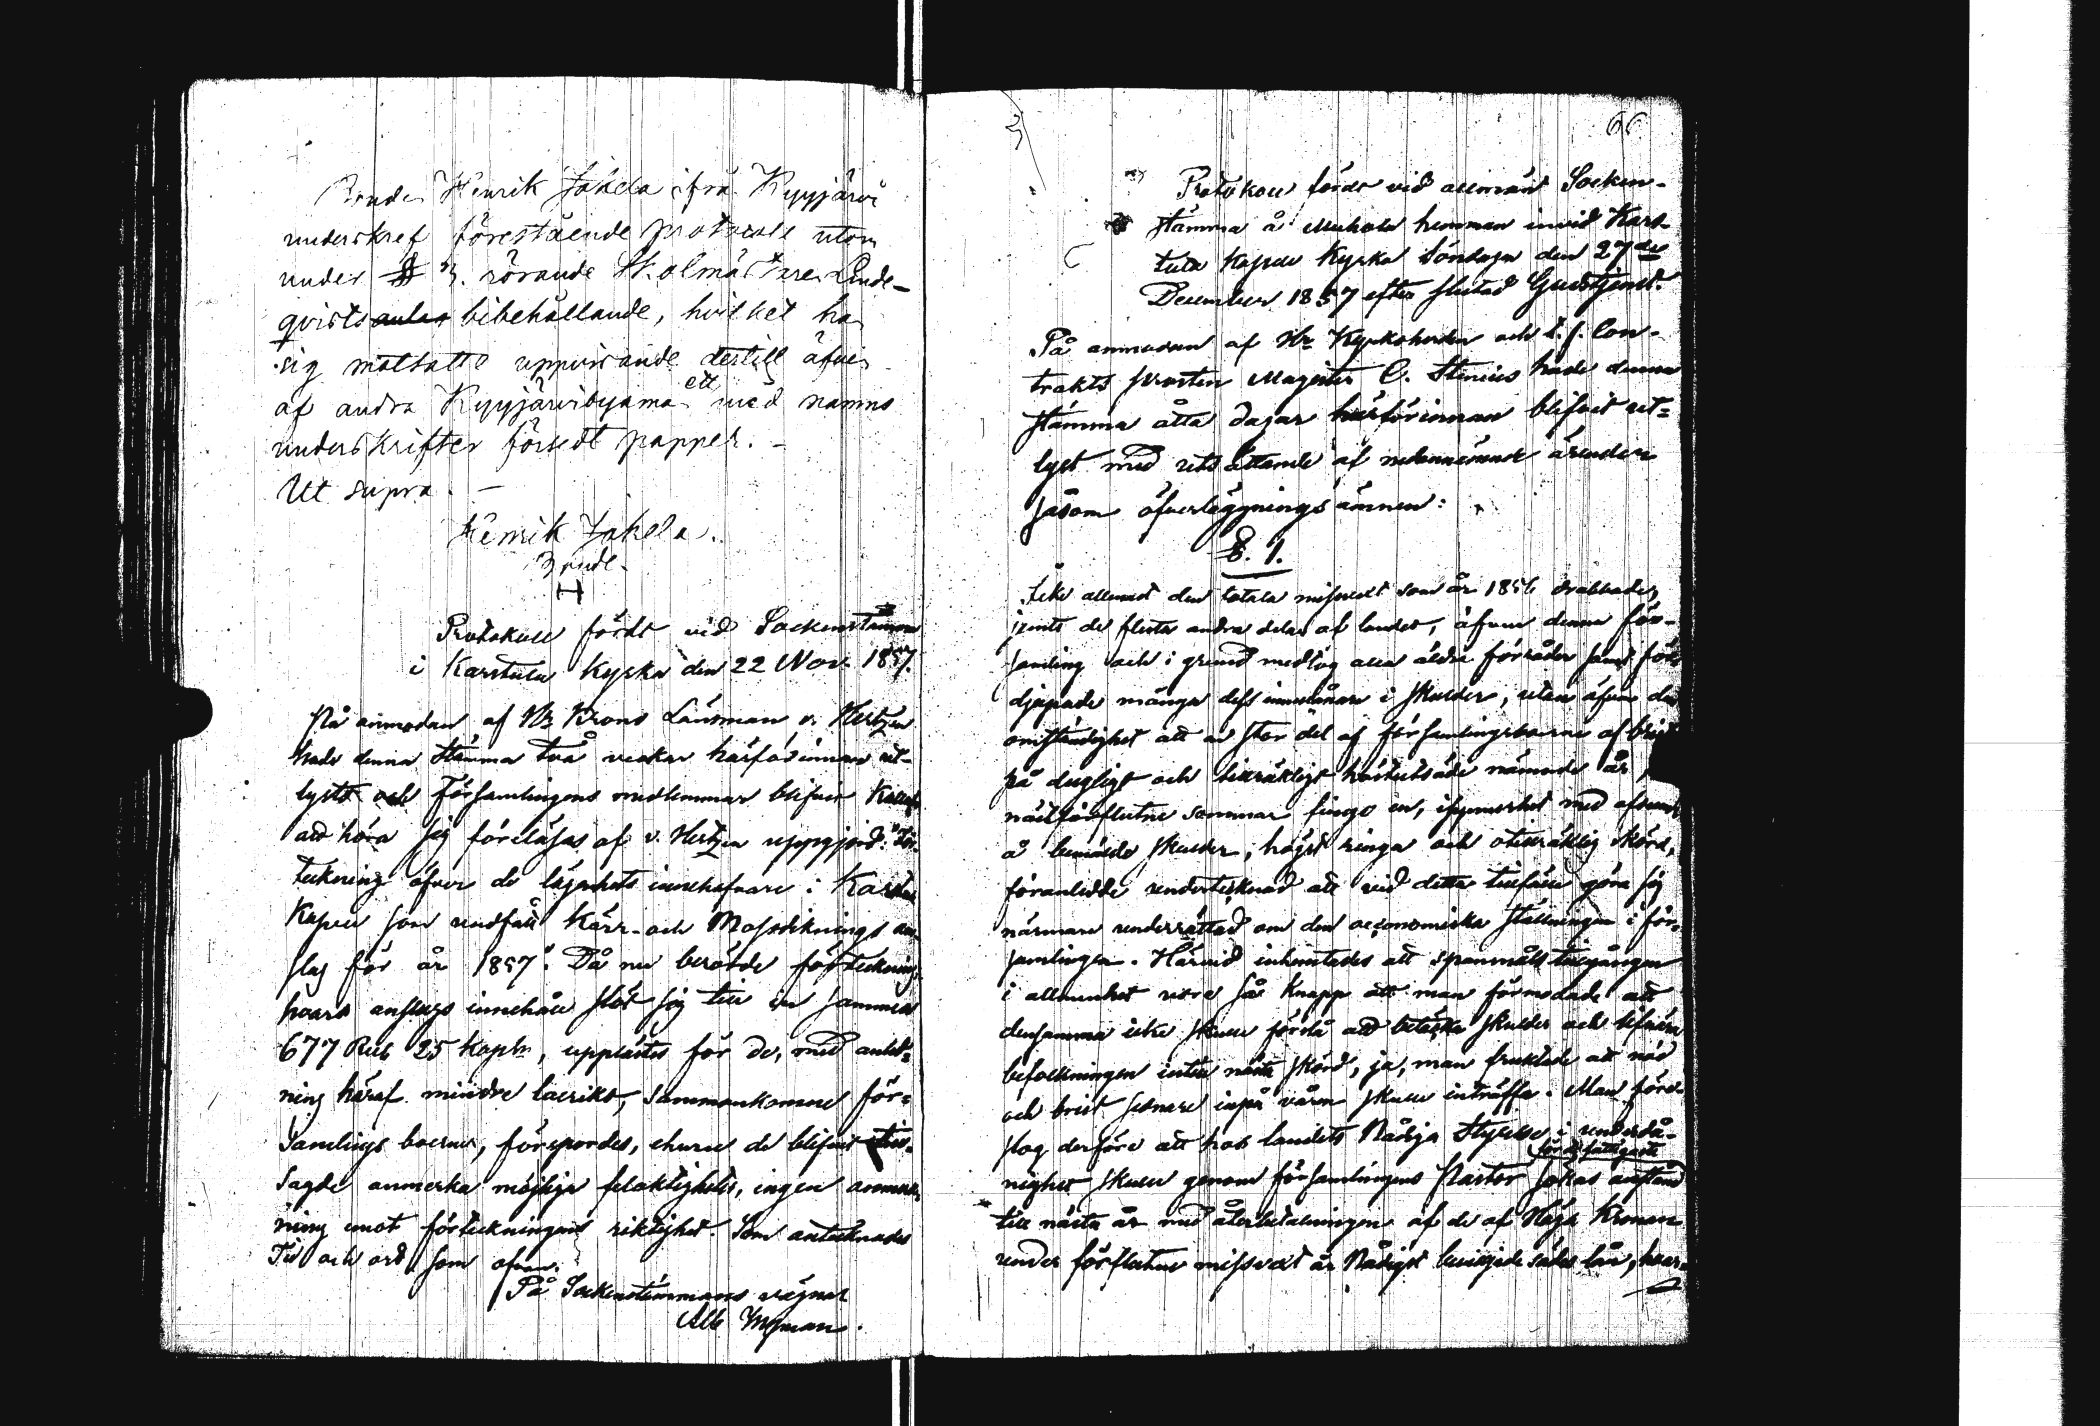 Bonden Henrik Jokela ifrå Kyyjärvi
underskref förestående protocoll utom
under § 3. rörande Skolmästaren Lind-
qvists bibehållande, hvilket han
sig motsatte uppvisande dertill äfven
af andra Kyyjärvibyama ett med namns
underskrifter försedt papper. –
Ut supra. –
Henrik Jokela.
Bonde.
Protokoll fördt vid Sockenstämma
i Karstula Kyrka den 22 Nov. 1857.
På anmodan af Hr Krono Länsman v. Hertzen
hade denna Stämma två veckor härförinnan ut-
lysts och Församlingens medlemmar blifvit kallade
att höra sig föreläsas af v. Hertzen uppgjord: "För-
teckning öfver de lägenhets innehafvare i Karstula
Kapell som undfått Kärr- och Mossodlings an-
slag för år 1857". Då nu berörde förteckning,
hvars anslags innehåll slöt sig till en summa
677 Rub 25 kop, upplästes för de, med anled-
ning häraf mindre talrikt, sammankomne för-
samlings boerne, försporдes, ehuru de blifvit till-
sagde anmerka möjliga felaktigheter, ingen anmerk-
ning emot förteckningens riktighet. Som antecknades
Tid och ord som ofvan.
På Sockenstämmans vägnar
Alb Nyman.
66
Protokoll fördt vid allmänt Socken-
stämma å Muhola hemman invid Kars-
tula Kapell Kyrka Söndagen den 27de
December 1857 efter slutad Gudstjenst.
På anmodan af Hr Kyrkoherden och t. f. Con-
trakts Prosten Magister C. Stenius hade denna
stämma åtta dagar härförinnan blifvit ut-
lyst med utsättande af nedannämnde ärenden
såsom öfverläggnings ämnen:
§. 1.
Icke allenast den totala missvext som år 1856 drabbade,
jemte de flesta andra delar af landet, äfven denna för-
samling och i grund medtog alla äldre förråder samt för-
djupade många dess innevånare i skulder, utan äfven den
omständighet att en stor del af församlingsboerne af brist
på dugligt och tillräckligt höstutsäde nämnde år,
nästförflutne sommar fingo en, isynnerhet med afseende
å bemälde skulder, högst ringa och otillräcklig skörd,
föranledde undertecknad att vid detta tillfälle göra sig
närmare underrättad om den oeconomiska ställningen i för-
samlingen. Härvid inhemtades att spannmåls tillgången
i allmänhet vore så knapp att man förmodade att
densamma icke skulle förslå att betäcka skulder och lifnära
befolkningen intill nästa skörd, ja, man fruktade att nöd
och brist sednare inpå våren skulle inträffa. Man före-
slog derföre att hos landets Nådiga Styrelse i underdå-
nighet skulle genom församlingens Pastor sökas för de fattigaste anstånd
till nästa år med återbetalningen af de af Höga Kronan
under förflutne missvext år Nådigst beviljade sädes lån, hvar-